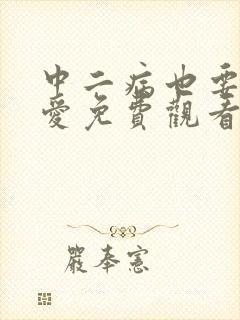 中二病也要
愛免費觀看
嚴奉憲